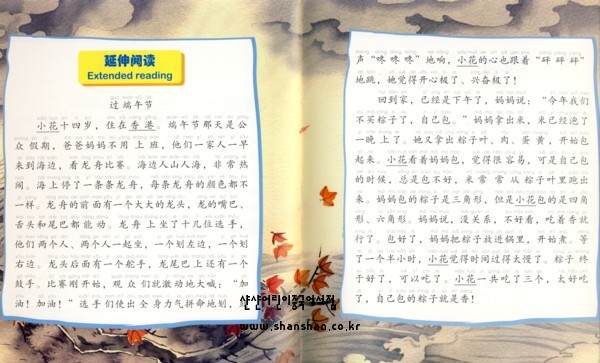 延伸阅读
Extended reading
过端午节
小花十四岁，住在香港。端午节那天是公
众假期，爸爸妈妈不用上班，他们一家人一早
来到海边，看龙舟比赛。海边人山人海，非常热
闹。海上停了一条条龙舟，每条龙舟的颜色都不
一样。龙舟的前面有一个大大的龙头，龙的嘴巴、
舌头和尾巴都能动。龙舟上坐了十几位选手，
他们两个人、两个人一起坐，一个划左边，一个划
右边。龙头后面有一个舵手，龙尾巴上还有一个
鼓手。比赛刚开始，观众们就激动地大喊：“加
油！加油！”选手们使出全身力气拼命地划，
声“咚咚咚”地响，小花的心也跟着“砰砰砰”
地跳，她觉得开心极了、兴奋极了！
回到家，已经是下午了，妈妈说：“今年我们
不买粽子了，自己包。”妈妈拿出来，米已经泡了
一晚上了。她又拿出粽子叶、肉、蛋黄，开始包
起来。小花看着妈妈包，觉得很容易，可是自己包
的时候，总是包不好，米常常从粽子叶里跑出
来。妈妈包的粽子是三角形，但是小花包的是四角
形、六角形。妈妈说，没关系，不好看，吃着香就
行了。包好了，妈妈把粽子放进锅里，开始煮。等
了一个半小时，小花觉得时间过得太慢了。粽子终
于好了，可以吃了。小花一共吃了三个，太好吃
了，自己包的粽子就是香！
샨샨어린이중국어서점
www.shanshan.co.kr